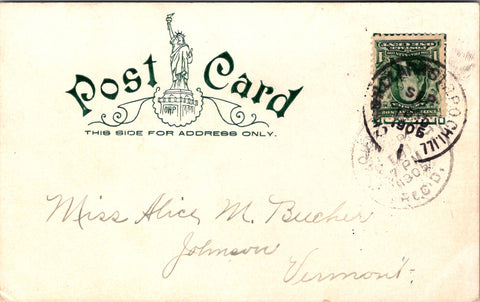 Post Card
THIS SIDE FOR ADDRESS ONLY.
1905
7 PM
1905
REC'D.
Miss Alice M. Bucher
Johnson
Vermont.